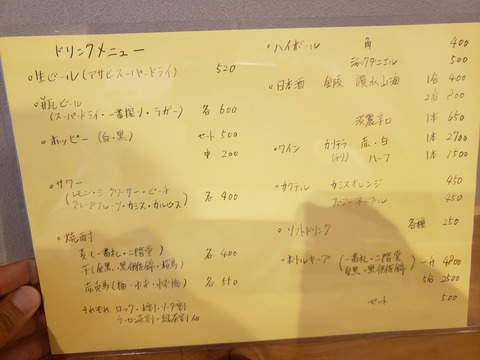 ドリンクメニュー
○生ビール (アサヒスーパードライ) 520
○瓶ビール
(スーパードライ・一番搾り・ラガー) 各 600
○ホッピー (白・黒) セット 500
中 200
○サワー
(レモン・シークワーサー・ピーチ
グレープフルーツ・カシス・カルピス) 各 400
○焼酎
麦 (一番札・二階堂) 各 400
芋 (白黒・黒伊佐錦
各 550
それぞれ ロック・水割・ソーダ割
○ハイボール 角 400
ジャックダニエル 500
○日本酒 金陵 1合 400
2合 800
淡麗辛口 1本 650
○ワイン カリテラ 赤・白 1本 2700
(チリ) ハーフ 1本 1500
○カクテル カシスオレンジ 450
ファジーネーブル 450
○ソフトドリンク 各種 250
○ボトルキープ (一番札・二階堂 一升 4800
白黒・黒伊佐錦) 5合 2500
セット 500